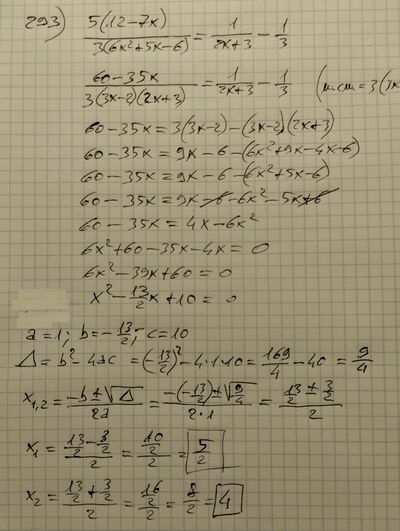 293) 5(12-7x)/3(6x²+5x-6) = 1/2x+3 - 1/3
60-35x/3(3x-2)(2x+3) = 1/2x+3 - 1/3 (mcm=3(3x
60-35x=3(3x-2)-(3x-2)(2x+3)
60-35x=9x-6-(6x²+9x-4x-6)
60-35x=9x-6-(6x²+5x-6)
60-35x=9x-6-6x²-5x+6
60-35x=4x-6x²
6x²+60-35x-4x=0
6x²-39x+60=0
x²-13/2x+10=0
a=1; b=-13/2; c=10
Δ=b²-4ac=(-13/2)²-4·1·10=169/4-40=9/4
x1,2=-b±√Δ/2a=-(-13/2)±√9/4/2·1=13/2±3/2/2
x1=13/2-3/2/2=10/2/2=5/2
x2=13/2+3/2/2=16/2/2=8/2=4